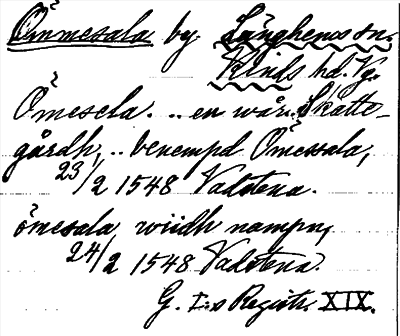 Ömmesala by. Länghems sn.
Kinds hd. Vg.
Ömesela. .. en wår Skatte-
gårdh, .. benempd Ömessala,
23/2 1548 Vadstena.
ömesala wiidh nampn,
24/2 1548 Vadstena.
G. I:s Registr. XIX.